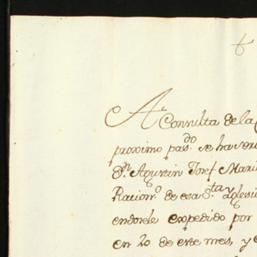 A Consulta de la
proximo pas.do se ha ser
Dn Agustin Josef Mari
Racion.o de esa S.ta Yglesi
endosele expedido por
en 20 de este mes, y